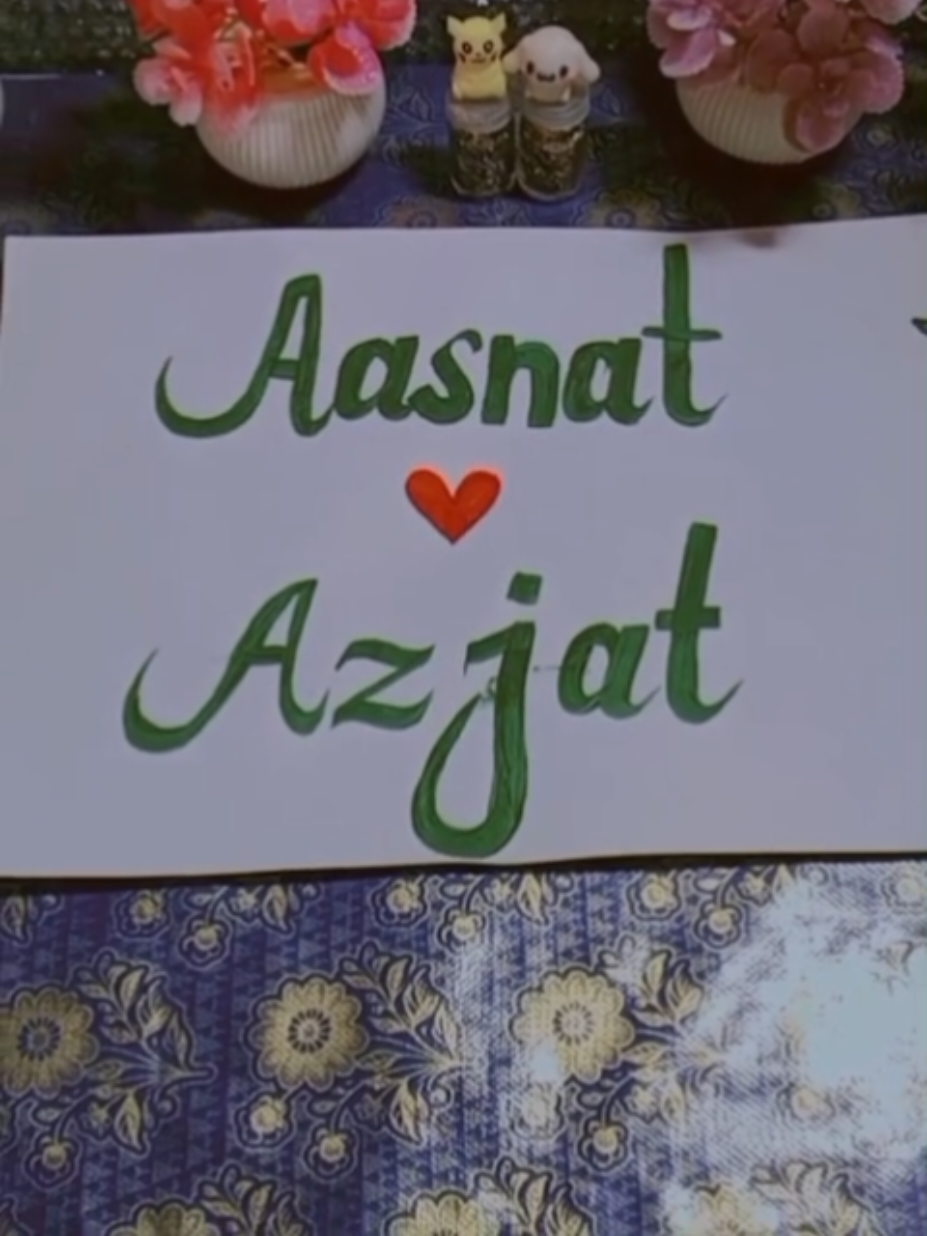 Aasnat
Azjat